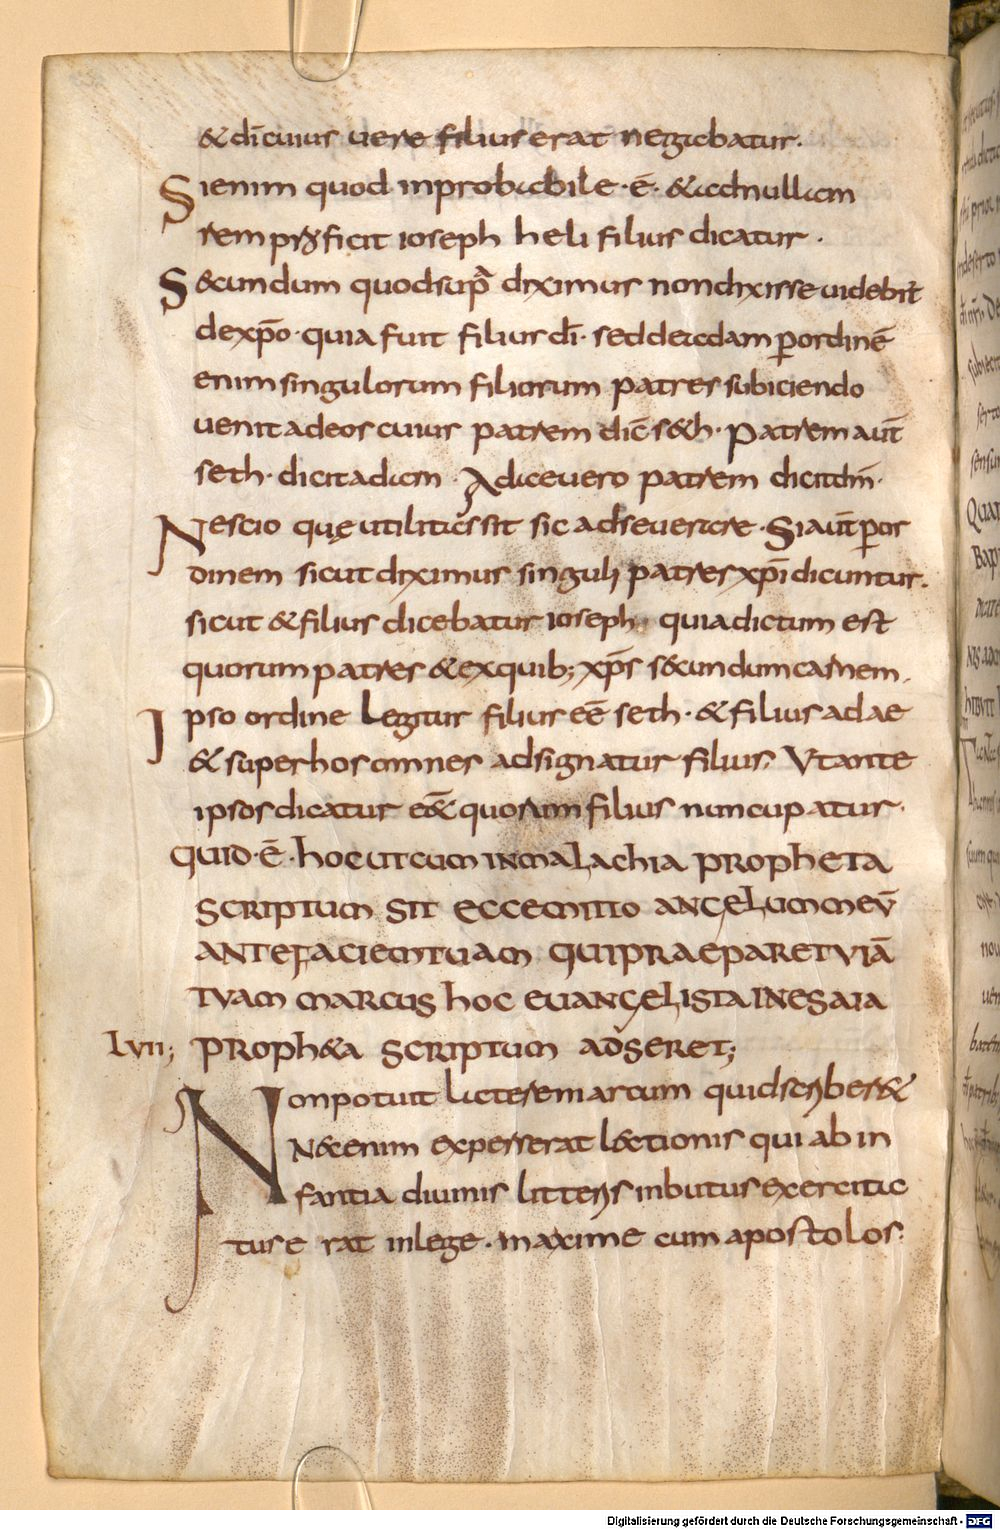 & di cuius uere filius erat negabatur.
Si enim quod inprobabile · ē · & ad nullam
rem proficit ioseph heli filius dicatur .
S&cundum quod supra diximus non dixisse uidebit
de xp̄o · quia fuit filius dī · sed de adam p ordinē
enim singulorum filiorum patres subiciendo
uenit ad eos cuius patrem dic̄ s&h · Patrem aut̄
seth · dicit adam · Adae uero patrem dicit dm̄ ·
Nescio quę utilitas sit sic adseuerare · Si aut̄ p or
dinem sicut diximus singuli patres xp̄i dicuntur.
sicut & filius dicebatur ioseph · quia dictum est
quorum patres & ex quib; xp̄s s&cundum carnem .
Ipso ordine legitur filius eē seth · & filius adae
& super hos omnes adsignatur filius, Ut ante
ipsos dicatur eē & quorum filius nuncupatur ·
QUID · Ē · hOC UT CUM IN MALACHIA PROPhETA
SCRIPTUM SIT ECCE MITTO ANGELUM MEŪ
ANTE FACIEM TUAM QUI PRAEPARET VIĀ
TVAM MARCUS hOC EUANGELISTA IN ESAIA
LVII; PROPh&A SCRIPTUM ADSERET;
Non potuit latere marcum quid scriber&
N&c enim expers erat l&ctionis qui ab in
fantia diuinis litteris inbutus exercita
tus erat in lege · maxime cum apostolos ·
Digitalisierung gefördert durch die Deutsche Forschungsgemeinschaft - DFG